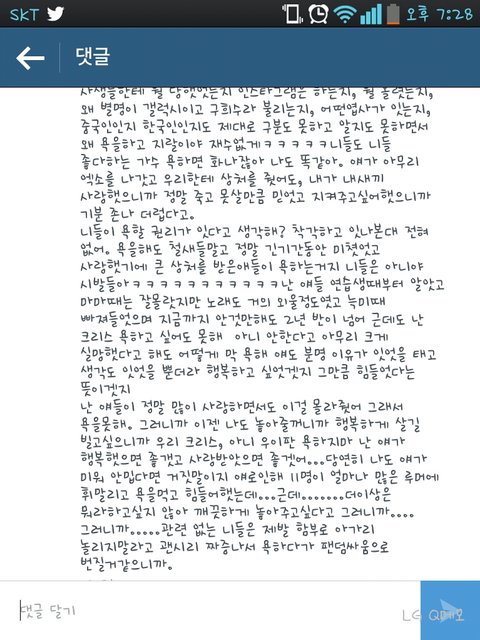 SKT 오후 7:28
댓글
사생들한테 뭘 당했었는지 인스타그램은 하는지, 뭘 올렸는지,
왜 별명이 갤럭시이고 구희수라 불리는지, 어떤엽사가 있는지,
중국인인지 한국인인지도 제대로 구분도 못하고 알지도 못하면서
왜 욕을하고 지랄이야 재수없게ㅋㅋㅋㅋㅋ니들도 니들
좋다하는 가수 욕하면 화나잖아 나도 똑같아. 얘가 아무리
엑소를 나갔고 우리한테 상처를 줬어도, 내가 내새끼
사랑했으니까 정말 죽고 못살만큼 믿었고 지켜주고싶어했으니까
기분 존나 더럽다고.
니들이 욕할 권리가 있다고 생각해? 착각하고 있나본대 전혀
없어. 욕을해도 철새들말고 정말 긴기간동안 미쳣었고
사랑했기에 큰 상처를 받은애들이 욕하는거지 니들은 아니야
시발들아ㅋㅋㅋㅋㅋㅋㅋㅋㅋㅋㅋ난 얘들 연습생때부터 알았고
마마때는 잘몰랏지만 노래도 거의 외울정도였고 늑미때
빠져들었으며 지금까지 안것만해도 2년 반이 넘어 근데도 난
크리스 욕하고 싶어도 못해  아니 안한다고 아무리 크게
실망했다고 해도 어떻게 막 욕해 얘도 분명 이유가 있었을 태고
생각도 있었을 뿐더라 행복하고 싶었겠지 그만큼 힘들었다는
뜻이겠지
난 얘들이 정말 많이 사랑하면서도 이걸 몰라줬어 그래서
욕을못해. 그러니까 이젠 나도 놓아줄꺼니까 행복하게 살길
빌고싶으니까 우리 크리스, 아니 우이판 욕하지마 난 얘가
행복했으면 좋겠고 사랑받았으면 좋겟어...당연히 나도 얘가
미워 안밉다면 거짓말이지 얘로인해 11명이 얼마나 많은 루머에
휘말리고 욕을먹고 힘들어했는데....근데........더이상은
뭐라하고싶지 않아 깨끗하게 놓아주고싶다고 그러니까....
그러니까.....관련 없는 니들은 제발 함부로 아가리
놀리지말라고 괜시리 짜증나서 욕하다가 팬덤싸움으로
번질거같으니까.
댓글 달기
LG Q메모